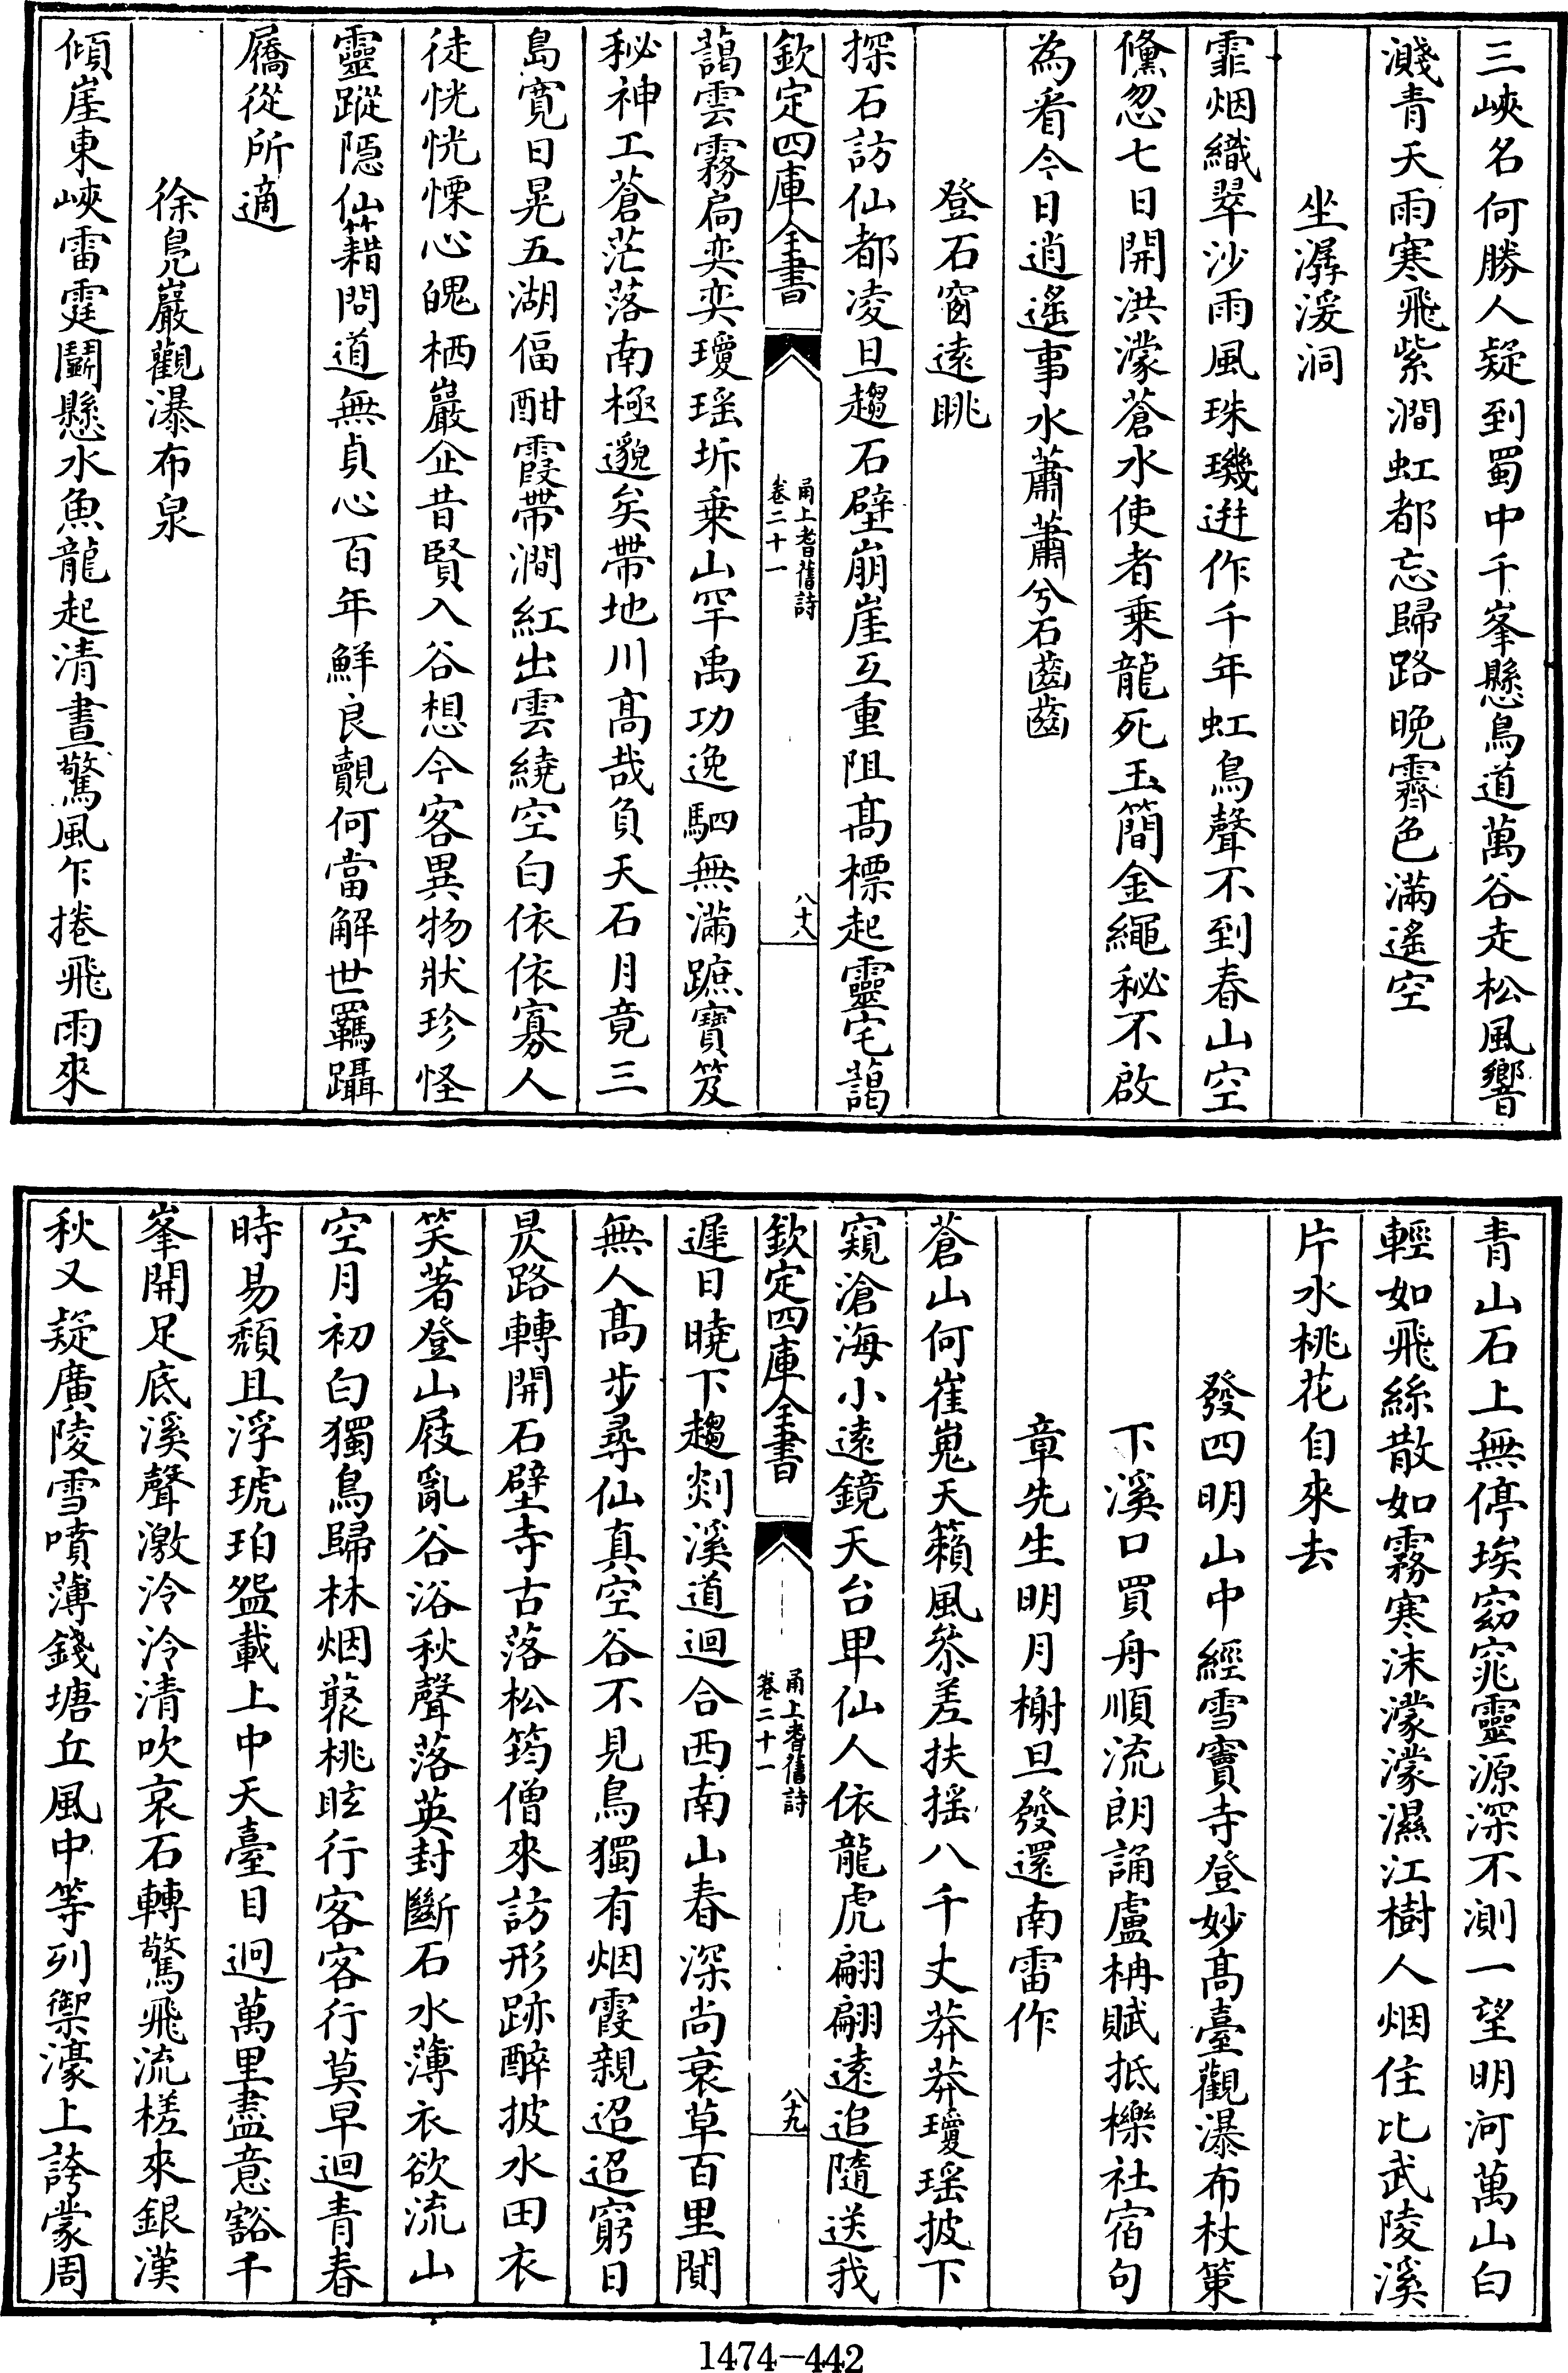 三峽名何勝人疑到蜀中千峯懸鳥道萬谷走松風響
濺青天雨寒飛紫澗虹都忘歸路晚霽色滿遙空
坐潺湲洞
霏烟織翠沙雨風珠璣迸作千年虹鳥聲不到春山空
儵忽七日開洪濛蒼水使者乗龍死玉簡金繩秘不啟
為看今日逍遙事水蕭蕭兮石齒齒
登石窗遠眺
探石訪仙都凌旦趨石壁崩崖互重阻髙標起靈宅藹
欽定四庫全書
甬上耆舊詩
卷二十一
八十八
藹雲霧扃奕奕瓊瑶坼乗山罕禹功逸駟無滿蹠寶笈
秘神工蒼茫落南極邈矣帶地川髙哉負天石月竟三
島寛日晃五湖偪酣霞帶澗紅出雲繞空白依依寡人
徒恍恍慄心魄栖巖企昔賢入谷想今客異物狀珍怪
靈蹤隠仙籍問道無貞心百年鮮良覿何當解世羈躡
屩從所適
徐鳬巖觀瀑布泉
傾崖東峽雷霆鬬懸水魚龍起清晝驚風乍捲飛雨來
青山石上無停埃窈窕靈源深不測一望明河萬山白
輕如飛絲散如霧寒沫濛濛濕江樹人烟住比武陵溪
片水桃花自來去
發四明山中經雪竇寺登妙髙臺觀瀑布杖策
下溪口買舟順流朗誦盧柟賦抵櫟社宿句
章先生明月榭旦發還南雷作
蒼山何崔嵬天籟風叅差扶摇八千丈莽莽瓊瑶披下
窺滄海小遠鏡天台卑仙人依龍虎翩翩遠追隨送我
欽定四庫全書
甬上耆舊詩
卷二十一
八十九
遲日曉下趨剡溪道迴合西南山春深尚衰草百里間
無人髙步尋仙真空谷不見鳥獨有烟霞親迢迢窮日
昃路轉開石壁寺古落松筠僧來訪形跡醉披水田衣
笑著登山屐亂谷浴秋聲落英封斷石水薄衣欲流山
空月初白獨鳥歸林烟聚桃眩行客客行莫早迴青春
時易頽且浮琥珀盌載上中天臺目迥萬里盡意豁千
峯開足底溪聲激泠泠清吹哀石轉驚飛流槎來銀漢
秋又疑廣陵雪噴薄錢塘丘風中等列禦濠上誇蒙周
1474-442